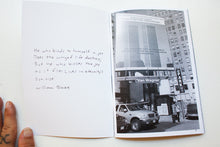 He who binds to himself a joy
Does the winged life destroy
But he who kisses the joy
as it flies lives in eternity's
sunrise
William Blake